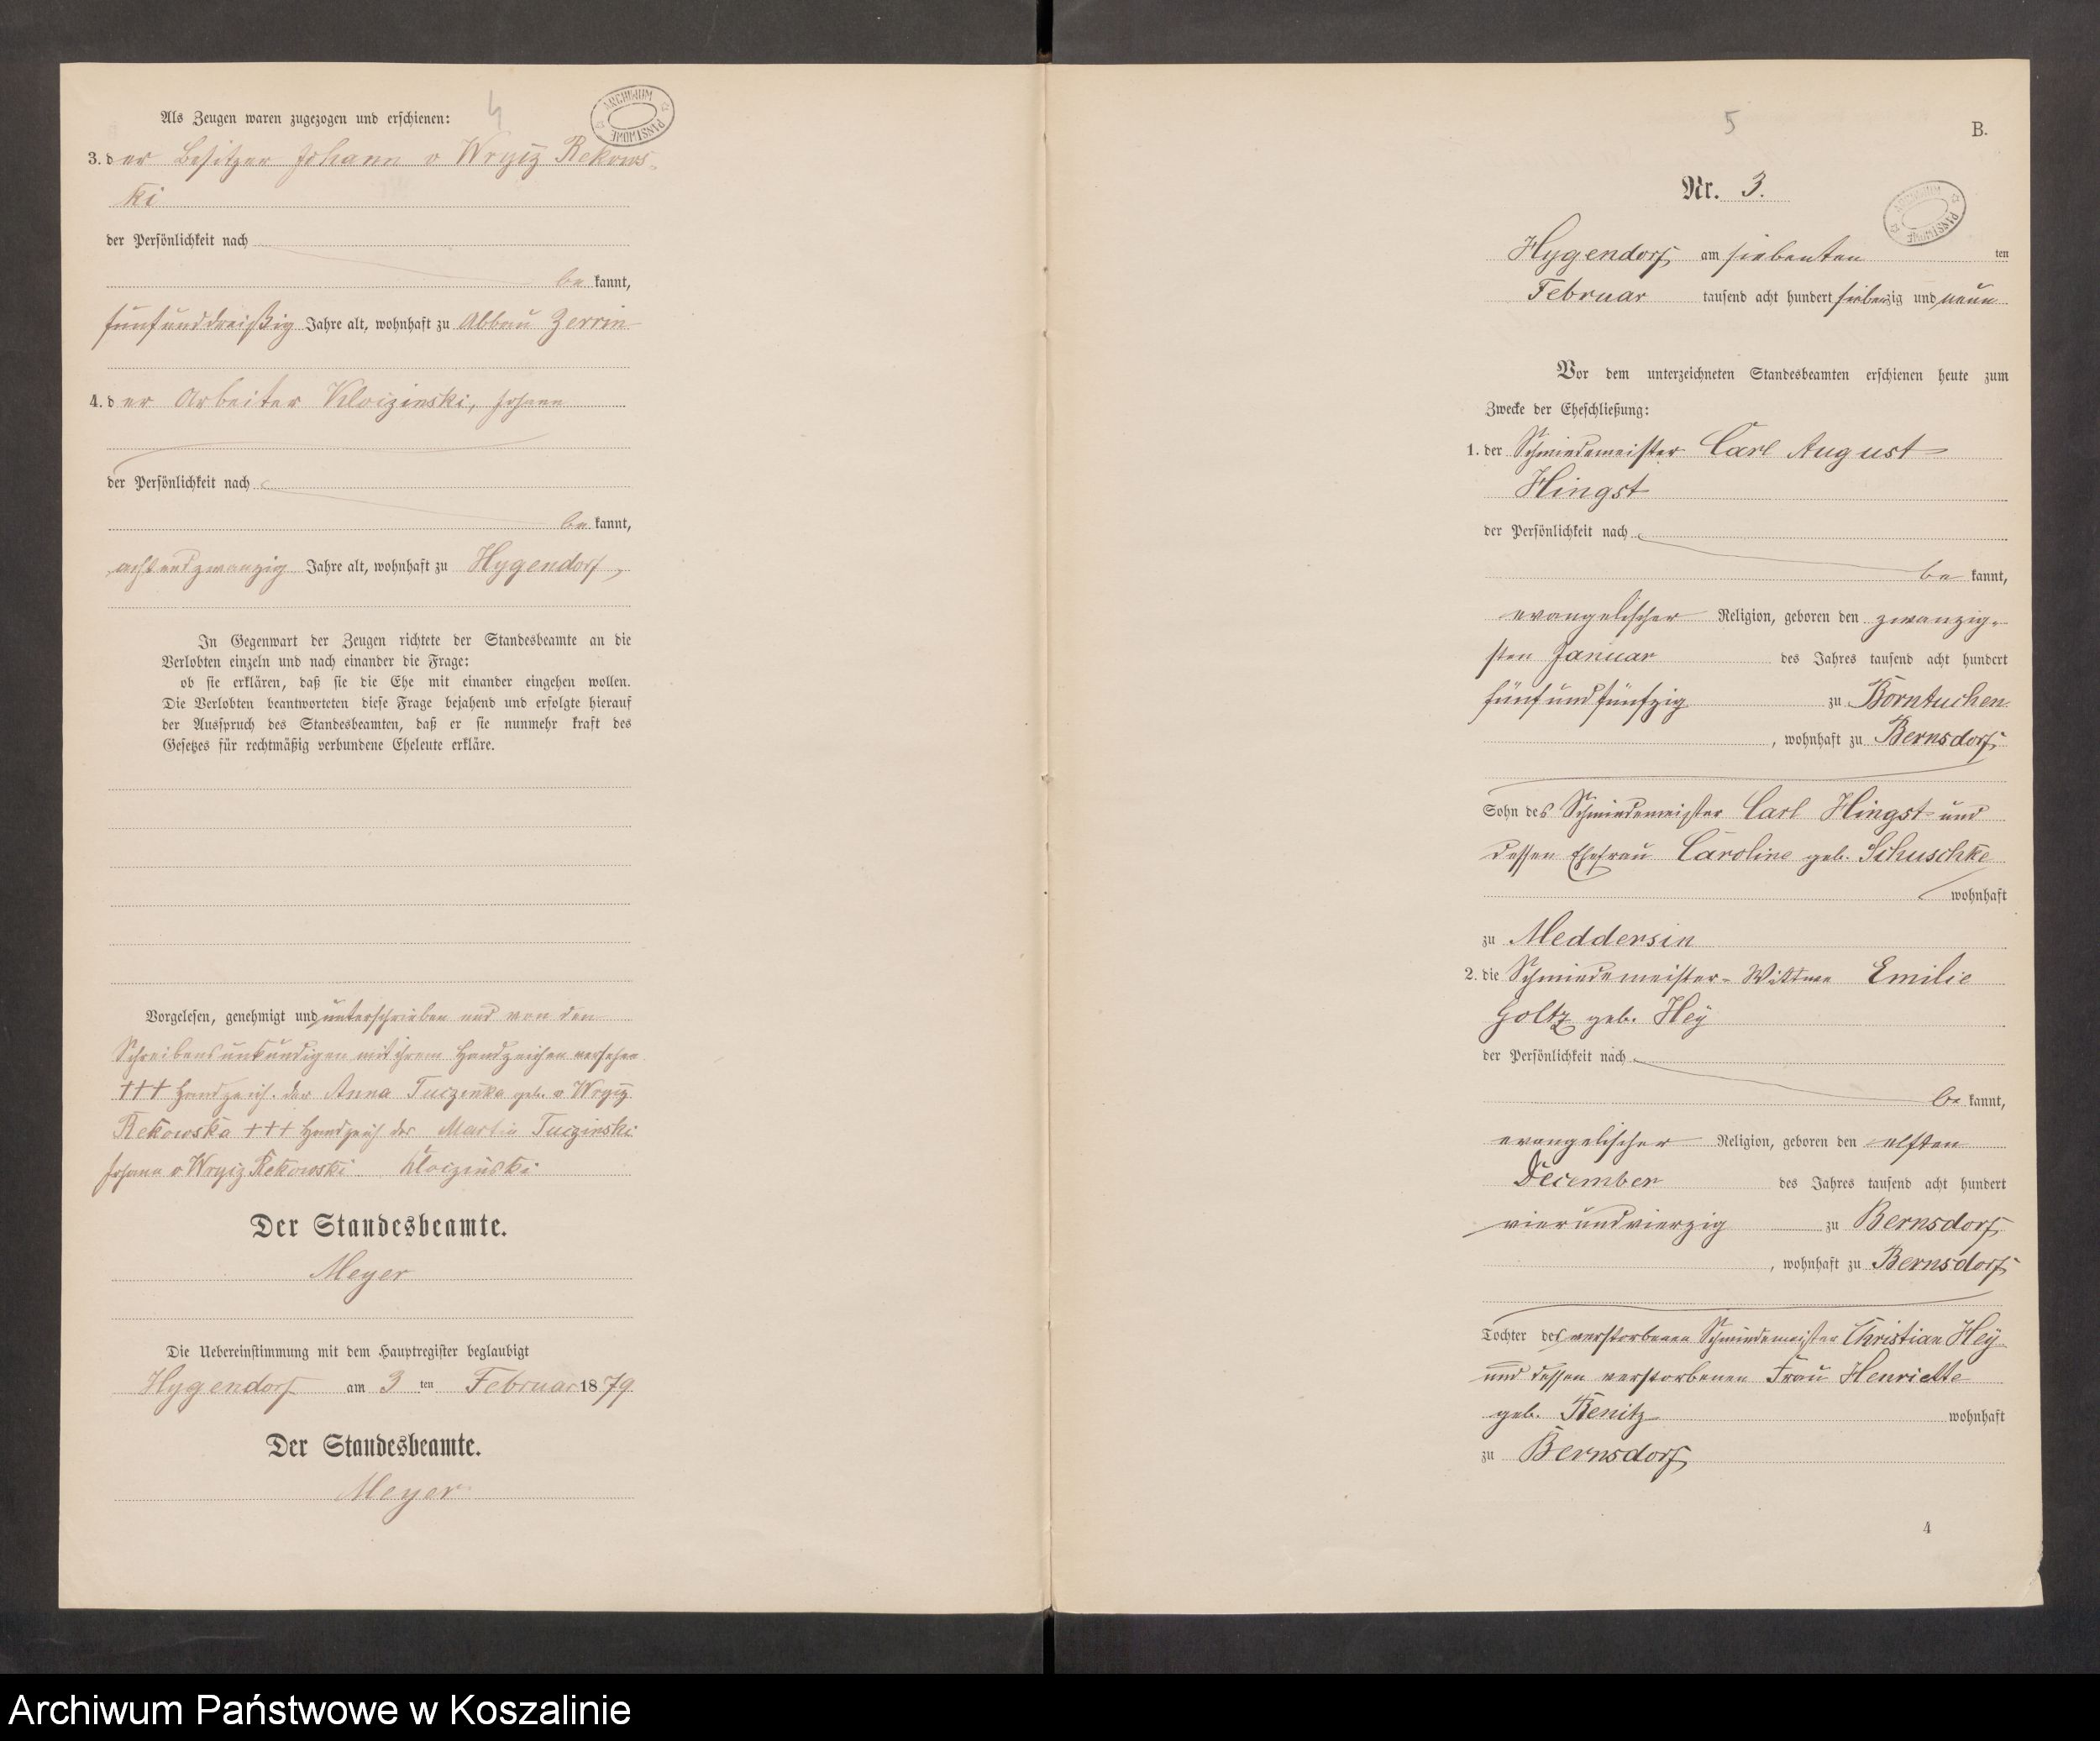 4
ARCHIWUM PAŃSTWOWE
Als Zeugen waren zugezogen und erschienen:
3. der Besitzer Johann v Wryiz Rekows-
ki
der Persönlichkeit nach
be kannt,
fünfunddreißig Jahre alt, wohnhaft zu Abbau Zerrin
4. der Arbeiter Kloizinski, Johann
der Persönlichkeit nach
be kannt,
achtundzwanzig Jahre alt, wohnhaft zu Hygendorf,
In Gegenwart der Zeugen richtete der Standesbeamte an die
Verlobten einzeln und nach einander die Frage:
ob sie erklären, daß sie die Ehe mit einander eingehen wollen.
Die Verlobten beantworteten diese Frage bejahend und erfolgte hierauf
der Ausspruch des Standesbeamten, daß er sie nunmehr kraft des
Gesetzes für rechtmäßig verbundene Eheleute erkläre.
Vorgelesen, genehmigt und unterschrieben und von den
Schreibensunkundigen mit ihrem Handzeichen versehen
+++ Handzeich. der Anna Tuczinka geb. v Wryiz
Rekowska +++ Handzeich der Martin Tuczinski
Johann v Wryiz Rekowski Kloizinski
Der Standesbeamte.
Meyer
Die Uebereinstimmung mit dem Hauptregister beglaubigt
Hygendorf am 3 ten Februar 1879
Der Standesbeamte.
Meyer
5
B.
Nr. 3.
ARCHIWUM PAŃSTWOWE
Hygendorf am siebenten ten
Februar tausend acht hundert siebenzig und neun
Vor dem unterzeichneten Standesbeamten erschienen heute zum
Zwecke der Eheschließung:
1. der Schmiedemeister Carl August
Hingst
der Persönlichkeit nach
be kannt,
evangelischer Religion, geboren den zwanzig-
sten Januar des Jahres tausend acht hundert
fünfundfünfzig zu Borntuchen
, wohnhaft zu Bernsdorf
Sohn des Schmiedemeister Carl Hingst und
dessen Ehefrau Caroline geb. Schuschke
wohnhaft
zu Meddersin
2. die Schmiedemeister-Wittwe Emilie
Goltz geb. Hey
der Persönlichkeit nach
be kannt,
evangelischer Religion, geboren den elften
December des Jahres tausend acht hundert
vierundvierzig zu Bernsdorf
, wohnhaft zu Bernsdorf
Tochter des verstorbenen Schmiedemeister Christian Hey
und dessen verstorbenen Frau Henriette
geb. Renitz wohnhaft
zu Bernsdorf
4
Archiwum Państwowe w Koszalinie